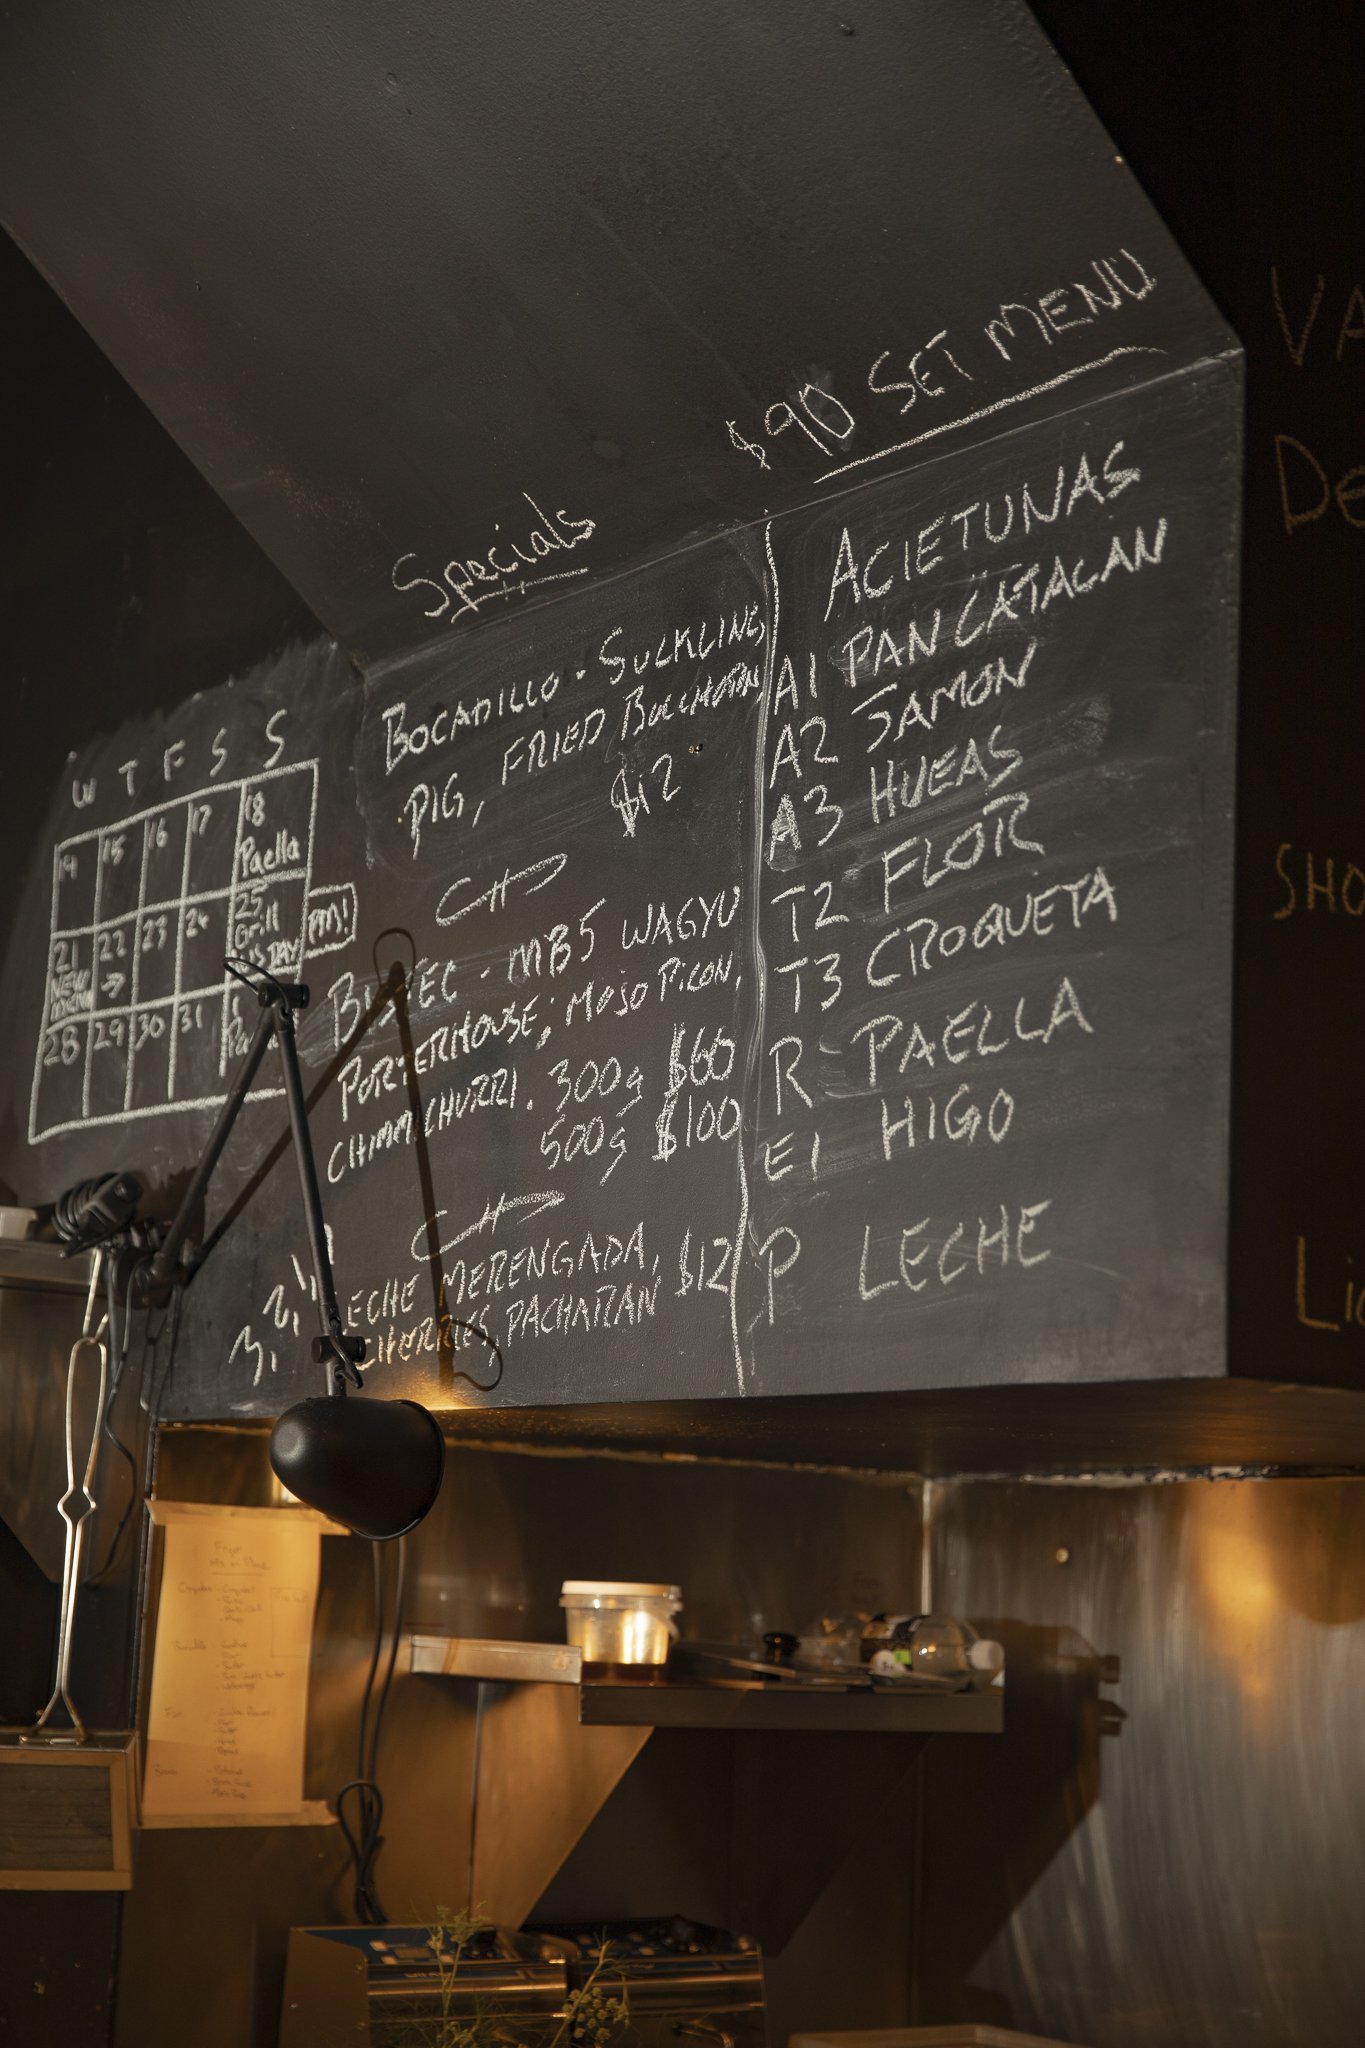 $90 SET MENU
ACIETUNAS
A1 PAN CATALAN
A2 JAMON
A3 HUEAS
T2 FLOR
T3 CROQUETA
R PAELLA
E1 HIGO
P LECHE
Specials
BOCADILLO - SUCKLING
PIG, FRIED
$12
- MB5 WAGYU
PORTERHOUSE, MOJO PICON,
CHIMMICHURRI. 300g $60
500g $100
ECHE MERENGADA, $12
CHERRIES, PACHARAN
W T F S S
14 15 16 17 18
Paella
21 22 23 24 25
NEW → Grill
MENU DAY PM!
28 29 30 31 1
3, 2, 1,
VA
De
SHO
Lic